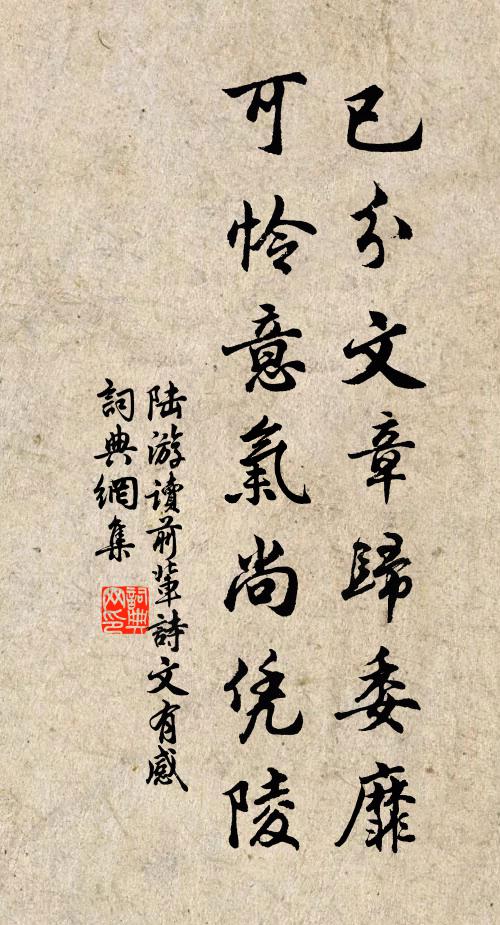 已分文章歸委靡
可怜意氣尚凭陵
陆游讀前輩詩文有感
詞典網集
詞典网印